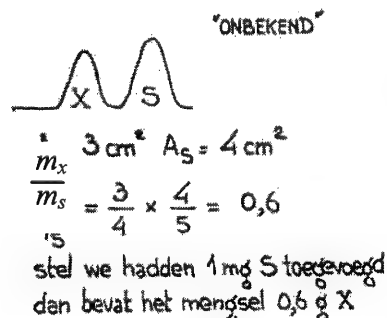 "ONBEKEND"
X S
3 cm² A_S = 4 cm²
m_x / m_s = 3/4 × 4/5 = 0,6
'S
stel we hadden 1 mg S toegevoegd
dan bevat het mengsel 0,6 g X